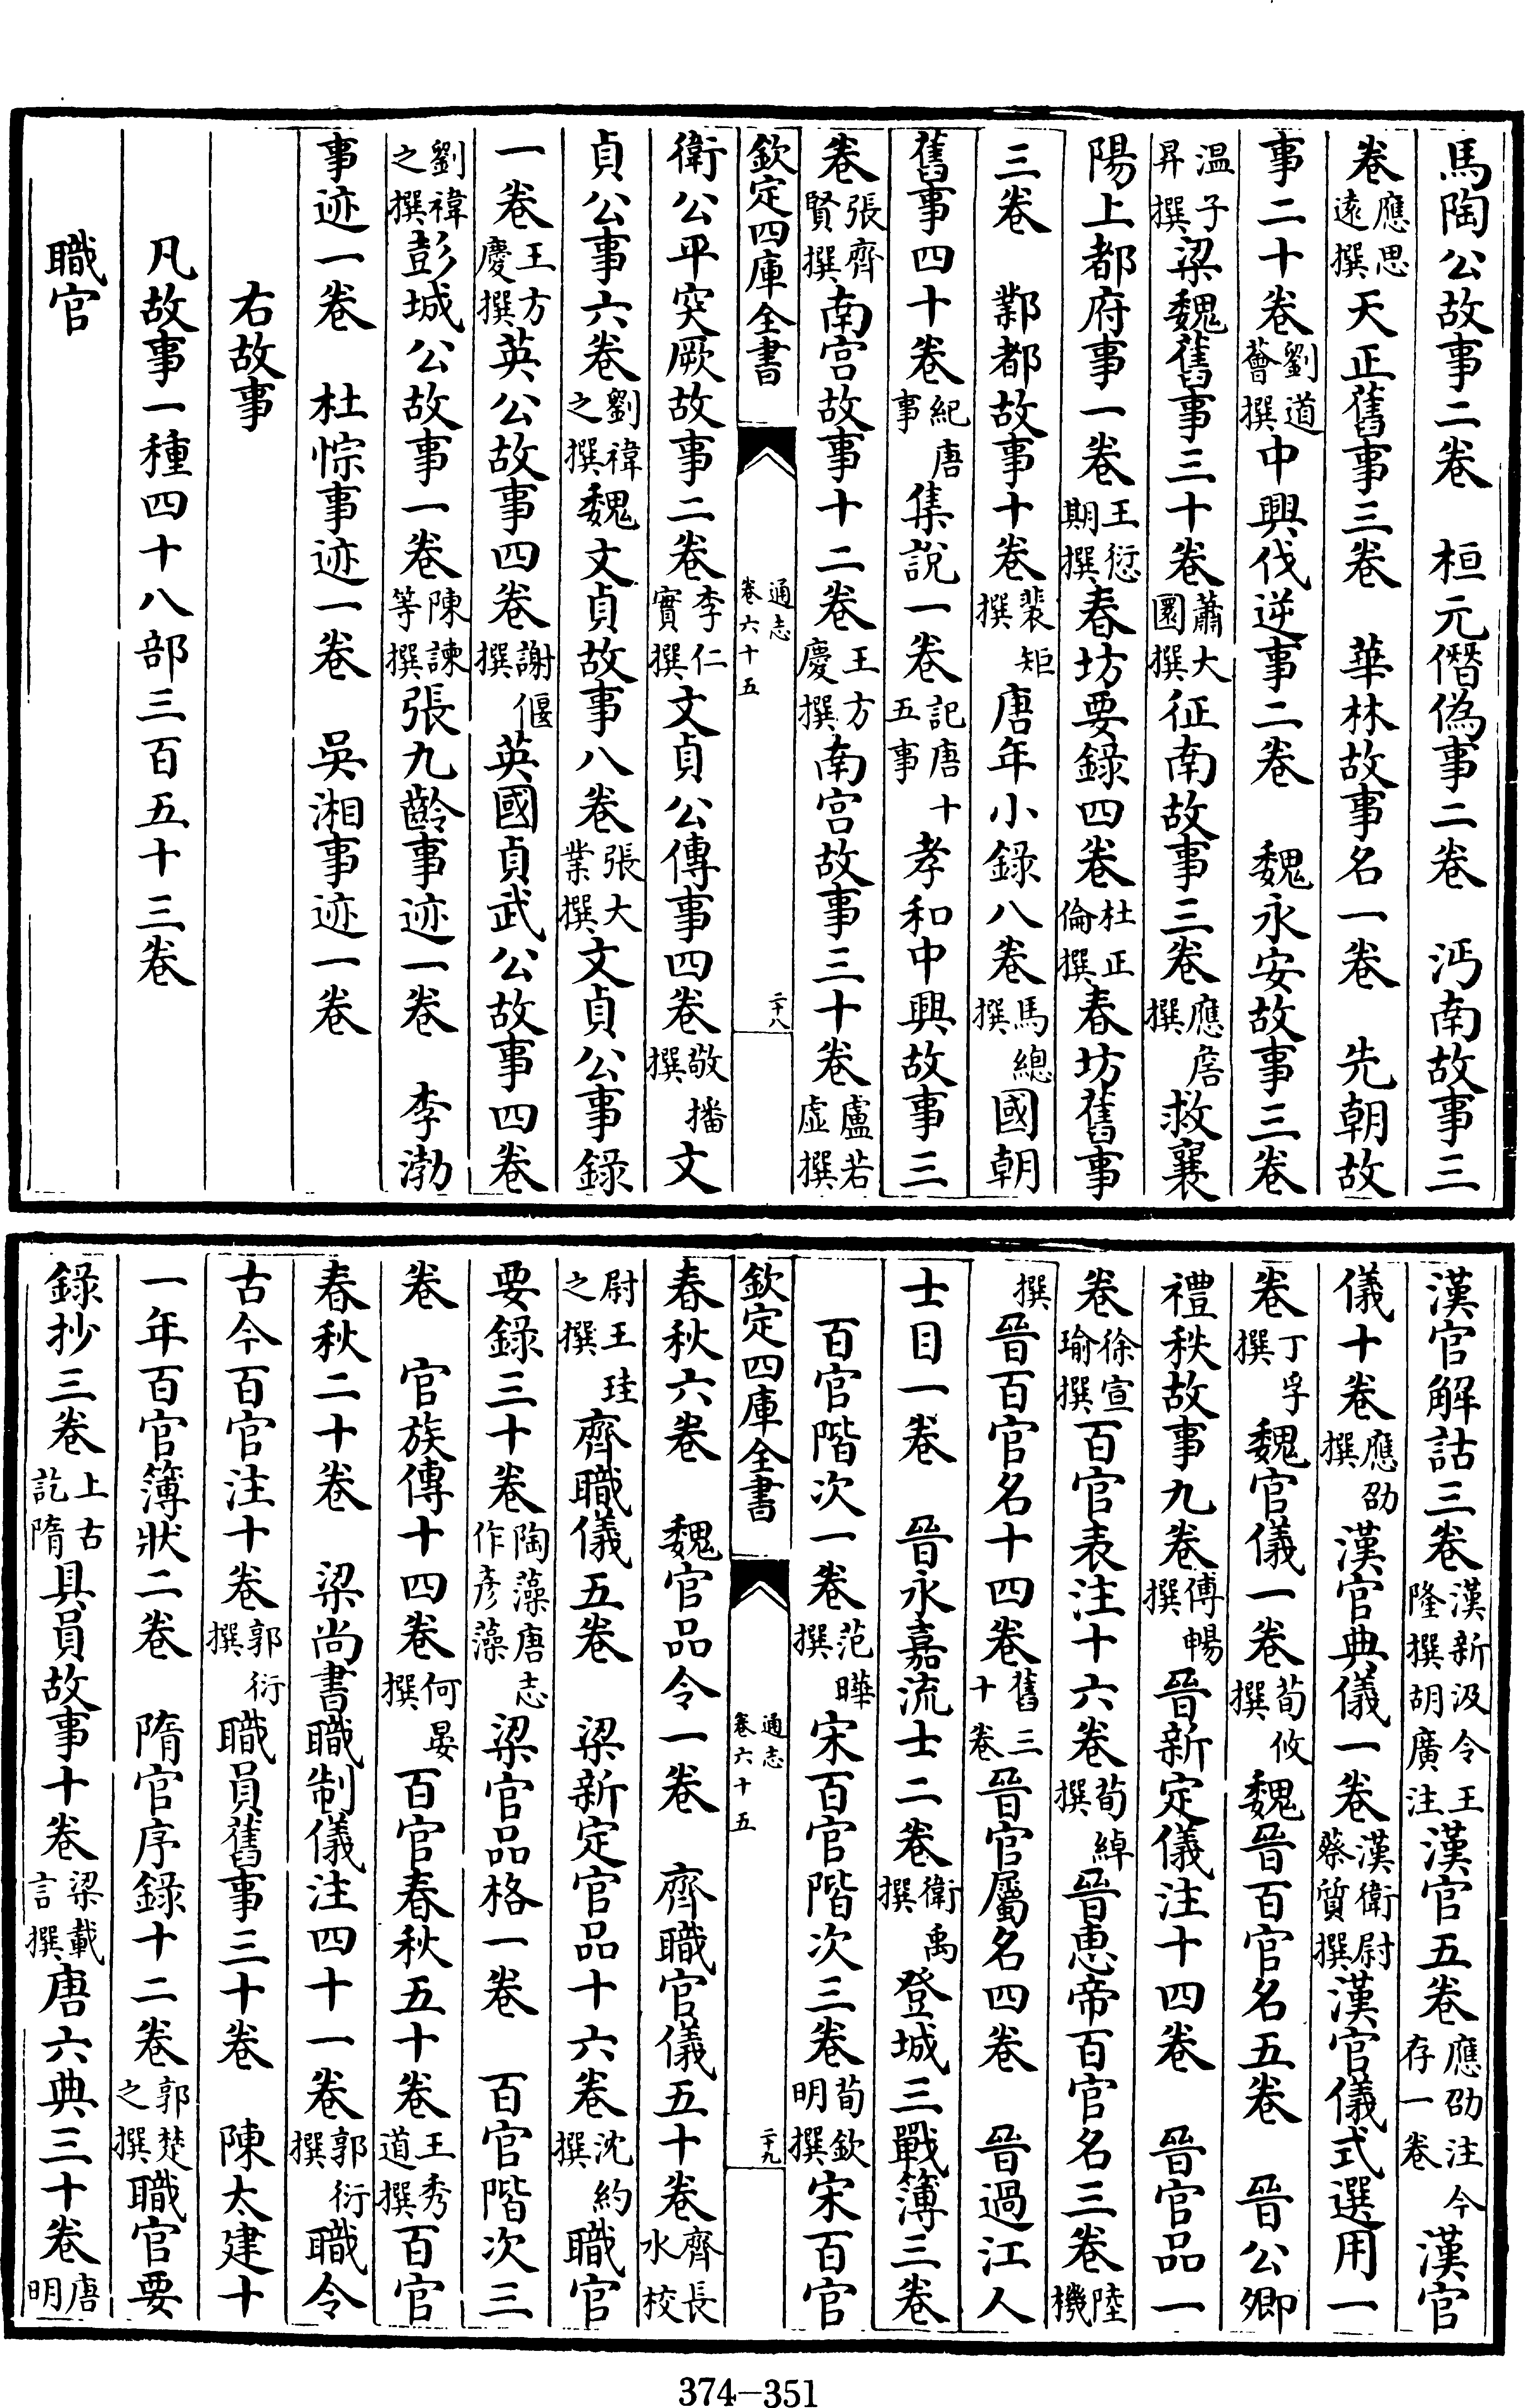 馬陶公故事二卷　桓元僭偽事二卷　沔南故事三
卷應思遠撰天正舊事三卷　華林故事名一卷　先朝故
事二十卷劉道薈撰中興伐逆事二卷　魏永安故事三卷
溫子昇撰梁魏舊事三十卷蕭大圜撰征南故事三卷應詹撰救襄
陽上都府事一卷王愆期撰春坊要錄四卷杜正倫撰春坊舊事
三卷　鄴都故事十卷裴矩撰唐年小錄八卷馬總撰國朝
舊事四十卷紀唐事集説一卷記唐十五事孝和中興故事三
卷張齊賢撰南宮故事十二卷王方慶撰南宮故事三十卷盧若虛撰
欽定四庫全書　通志卷六十五　二十八
衛公平突厥故事二卷李仁實撰文貞公傳事四卷敬播撰文
貞公事六卷劉禕之撰魏文貞故事八卷張大業撰文貞公事錄
一卷王方慶撰英公故事四卷謝偃撰英國貞武公故事四卷
劉禕之撰彭城公故事一卷陳諫等撰張九齡事迹一卷　李渤
事迹一卷　杜悰事迹一卷　吳湘事迹一卷
右故事
凡故事一種四十八部三百五十三卷
職官
漢官解詁三卷漢新汲令王隆撰胡廣注漢官五卷應劭注今存一卷漢官
儀十卷應劭撰漢官典儀一卷漢衛尉蔡質撰漢官儀式選用一
卷丁孚撰魏官儀一卷荀攸撰魏晉百官名五卷　晉公卿
禮秩故事九卷傅暢撰晉新定儀注十四卷　晉官品一
卷徐宣瑜撰百官表注十六卷荀綽撰晉惠帝百官名三卷陸機
撰晉百官名十四卷舊三十卷晉官屬名四卷　晉過江人
士目一卷　晉永嘉流士二卷衛禹撰登城三戰簿三卷
百官階次一卷范曄撰宋百官階次三卷荀欽明撰宋百官
欽定四庫全書　通志卷六十五　二十九
春秋六卷　魏官品令一卷　齊職官儀五十卷齊長水校
尉王珪之撰齊職儀五卷　梁新定官品十六卷沈約撰職官
要錄三十卷陶藻唐志作彥藻梁官品格一卷　百官階次三
卷　官族傳十四卷何晏撰百官春秋五十卷王秀道撰百官
春秋二十卷　梁尚書職制儀注四十一卷郭衍撰職令
古今百官注十卷郭衍撰職員舊事三十卷　陳太建十
一年百官簿狀二卷　隋官序錄十二卷郭楚之撰職官要
錄抄三卷上古訖隋具員故事十卷梁載言撰唐六典三十卷唐明
374—351